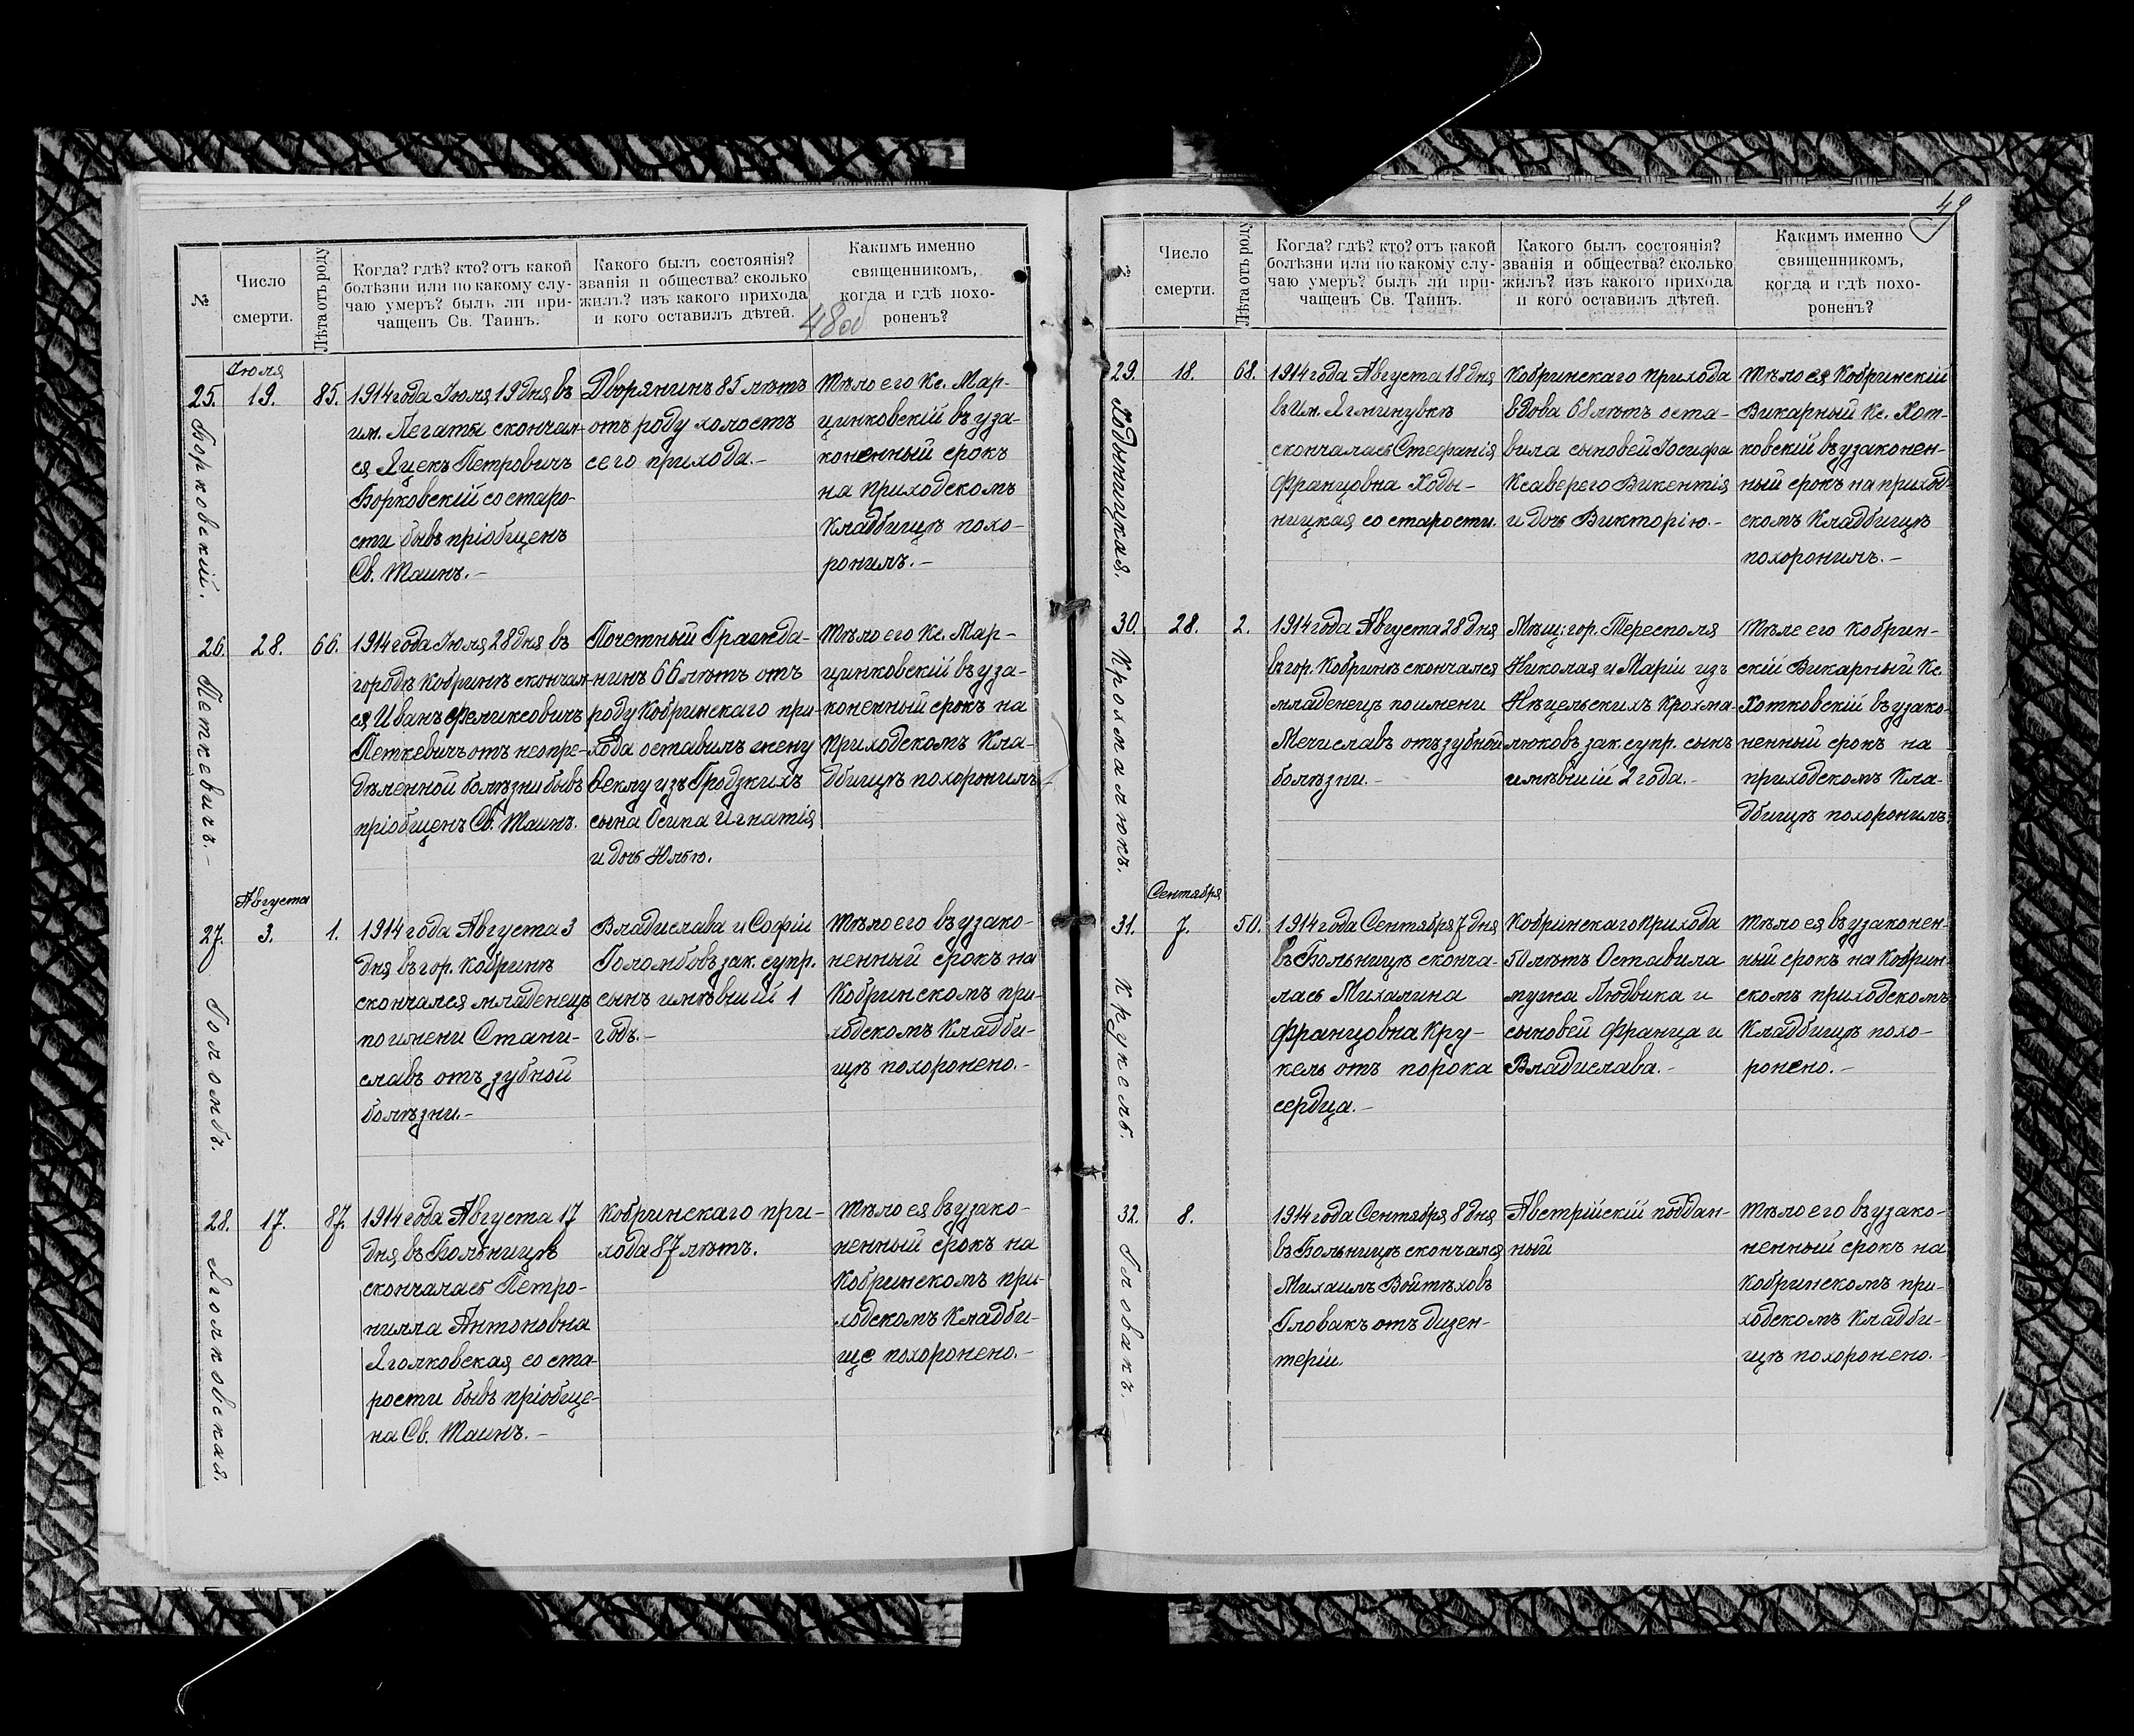 №
Число
смерти.
Лѣта отъ роду
Когда? гдѣ? кто? отъ какой
болѣзни или по какому слу-
чаю умеръ? былъ ли при-
чащенъ Св. Таинъ.
Какого былъ состоянія?
званія и общества? сколько
жилъ? изъ какого прихода
и кого оставилъ дѣтей.
Какимъ именно
священникомъ,
когда и гдѣ похо-
роненъ?
48об
Іюля
25.
Борковскій.
19.
85.
1914 года Іюля 19 дня въ
им. Легаты скончал-
ся Яцекъ Петровичъ
Борковскій со старо-
сти бывъ пріобщенъ
Св. Таинъ.-
Дворянинъ 85 лѣтъ
отъ роду холостъ
сего прихода.-
Тѣло его Кс. Мар-
цинковскій въ уза-
коненный срокъ
на приходскомъ
Кладбищѣ похо-
ронилъ.-
26.
Петкевичъ.-
28.
66.
1914 года Іюля 28 дня въ
городѣ Кобринѣ скончал-
ся Иванъ Феликсовичъ
Петкевичъ отъ неопре-
дѣленной болѣзни бывъ
пріобщенъ Св. Таинъ.
Почетный Гражда-
нинъ 66 лѣтъ отъ
роду Кобринскаго при-
хода оставилъ жену
Феклу изъ Гродзкихъ
сына Осипа Игнатія
и дочь Юлью.
Тѣло его Кс. Мар-
цинковскій въ уза-
коненный срокъ на
приходскомъ Кла-
дбищѣ похоронилъ
Августа
27.
Голомбъ.
3.
1.
1914 года Августа 3
дня въ гор. Кобринѣ
скончался младенецъ
по имени Стани-
славъ отъ зубной
болѣзни.-
Владислава и Софіи
Голомбовъ зак. супр.
сынъ имѣвшій 1
годъ.-
Тѣло его въ узако-
ненный срокъ на
Кобринскомъ при-
ходскомъ Кладби-
щѣ похоронено.-
28.
Яголковская.
17.
87.
1914 года Августа 17
дня въ Больницѣ
скончалась Петро-
нилла Антоновна
Яголковская со ста-
рости бывъ пріобще-
на Св. Таинъ.-
Кобринскаго при-
хода 87 лѣтъ.
Тѣло ея въ узако-
ненный срокъ на
Кобринскомъ при-
ходскомъ Кладби-
ще похоронено.-
49
№
Число
смерти.
Лѣта отъ роду
Когда? гдѣ? кто? отъ какой
болѣзни или по какому слу-
чаю умеръ? былъ ли при-
чащенъ Св. Таинъ.
Какого былъ состоянія?
званія и общества? сколько
жилъ? изъ какого прихода
и кого оставилъ дѣтей.
Какимъ именно
священникомъ,
когда и гдѣ похо-
роненъ?
29.
Ходыницкая.
18.
68.
1914 года Августа 18 дня
въ Им. Ягминувкѣ
скончалась Стефанія
Францовна Ходы-
ницкая со старости.
Кобринскаго прихода
вдова 68 лѣтъ оста-
вила сыновей Іосифа
Ксаверего Викентія
и дочь Викторію.-
Тѣло ея Кобринскій
Викарный Кс. Хот-
ковскій въ узаконен-
ный срокъ на приход-
скомъ Кладбищѣ
похоронилъ.-
30.
Крохмалюкъ.
28.
2.
1914 года Августа 28 дня
въ гор. Кобринѣ скончался
младенецъ по имени
Мечиславъ отъ зубной
болѣзни.-
Мѣщ: гор. Тересполя
Николая и Маріи изъ
Нѣцельскихъ Крохма-
люковъ зак. супр. сынъ
имѣвшій 2 года.-
Тѣле его Кобрин-
скій Викарный Кс.
Хотковскій въ узако-
ненный срокъ на
приходскомъ Кла-
дбищѣ похоронилъ.
Сентября
31.
Крукель.
7.
50.
1914 года Сентября 7 дня
въ Больницѣ сконча-
лась Михалина
Францовна Кру-
кель отъ порока
сердца.-
Кобринскаго прихода
50 лѣтъ Оставила
мужа Людвика и
сыновей Франца и
Владислава.-
Тѣло ея въ узаконен-
ный срокъ на Кобрин-
скомъ приходскомъ
Кладбищѣ похо-
ронено.-
32.
Гловакъ.
8.
1914 года Сентября 8 дня
въ Больницѣ скончался
Михаилъ Войтѣховъ
Гловакъ отъ дизен-
теріи.
Австрійскій поддан-
ный
Тѣло его въ узако-
ненный срокъ на
Кобринскомъ при-
ходскомъ Кладби-
щѣ похоронено.-